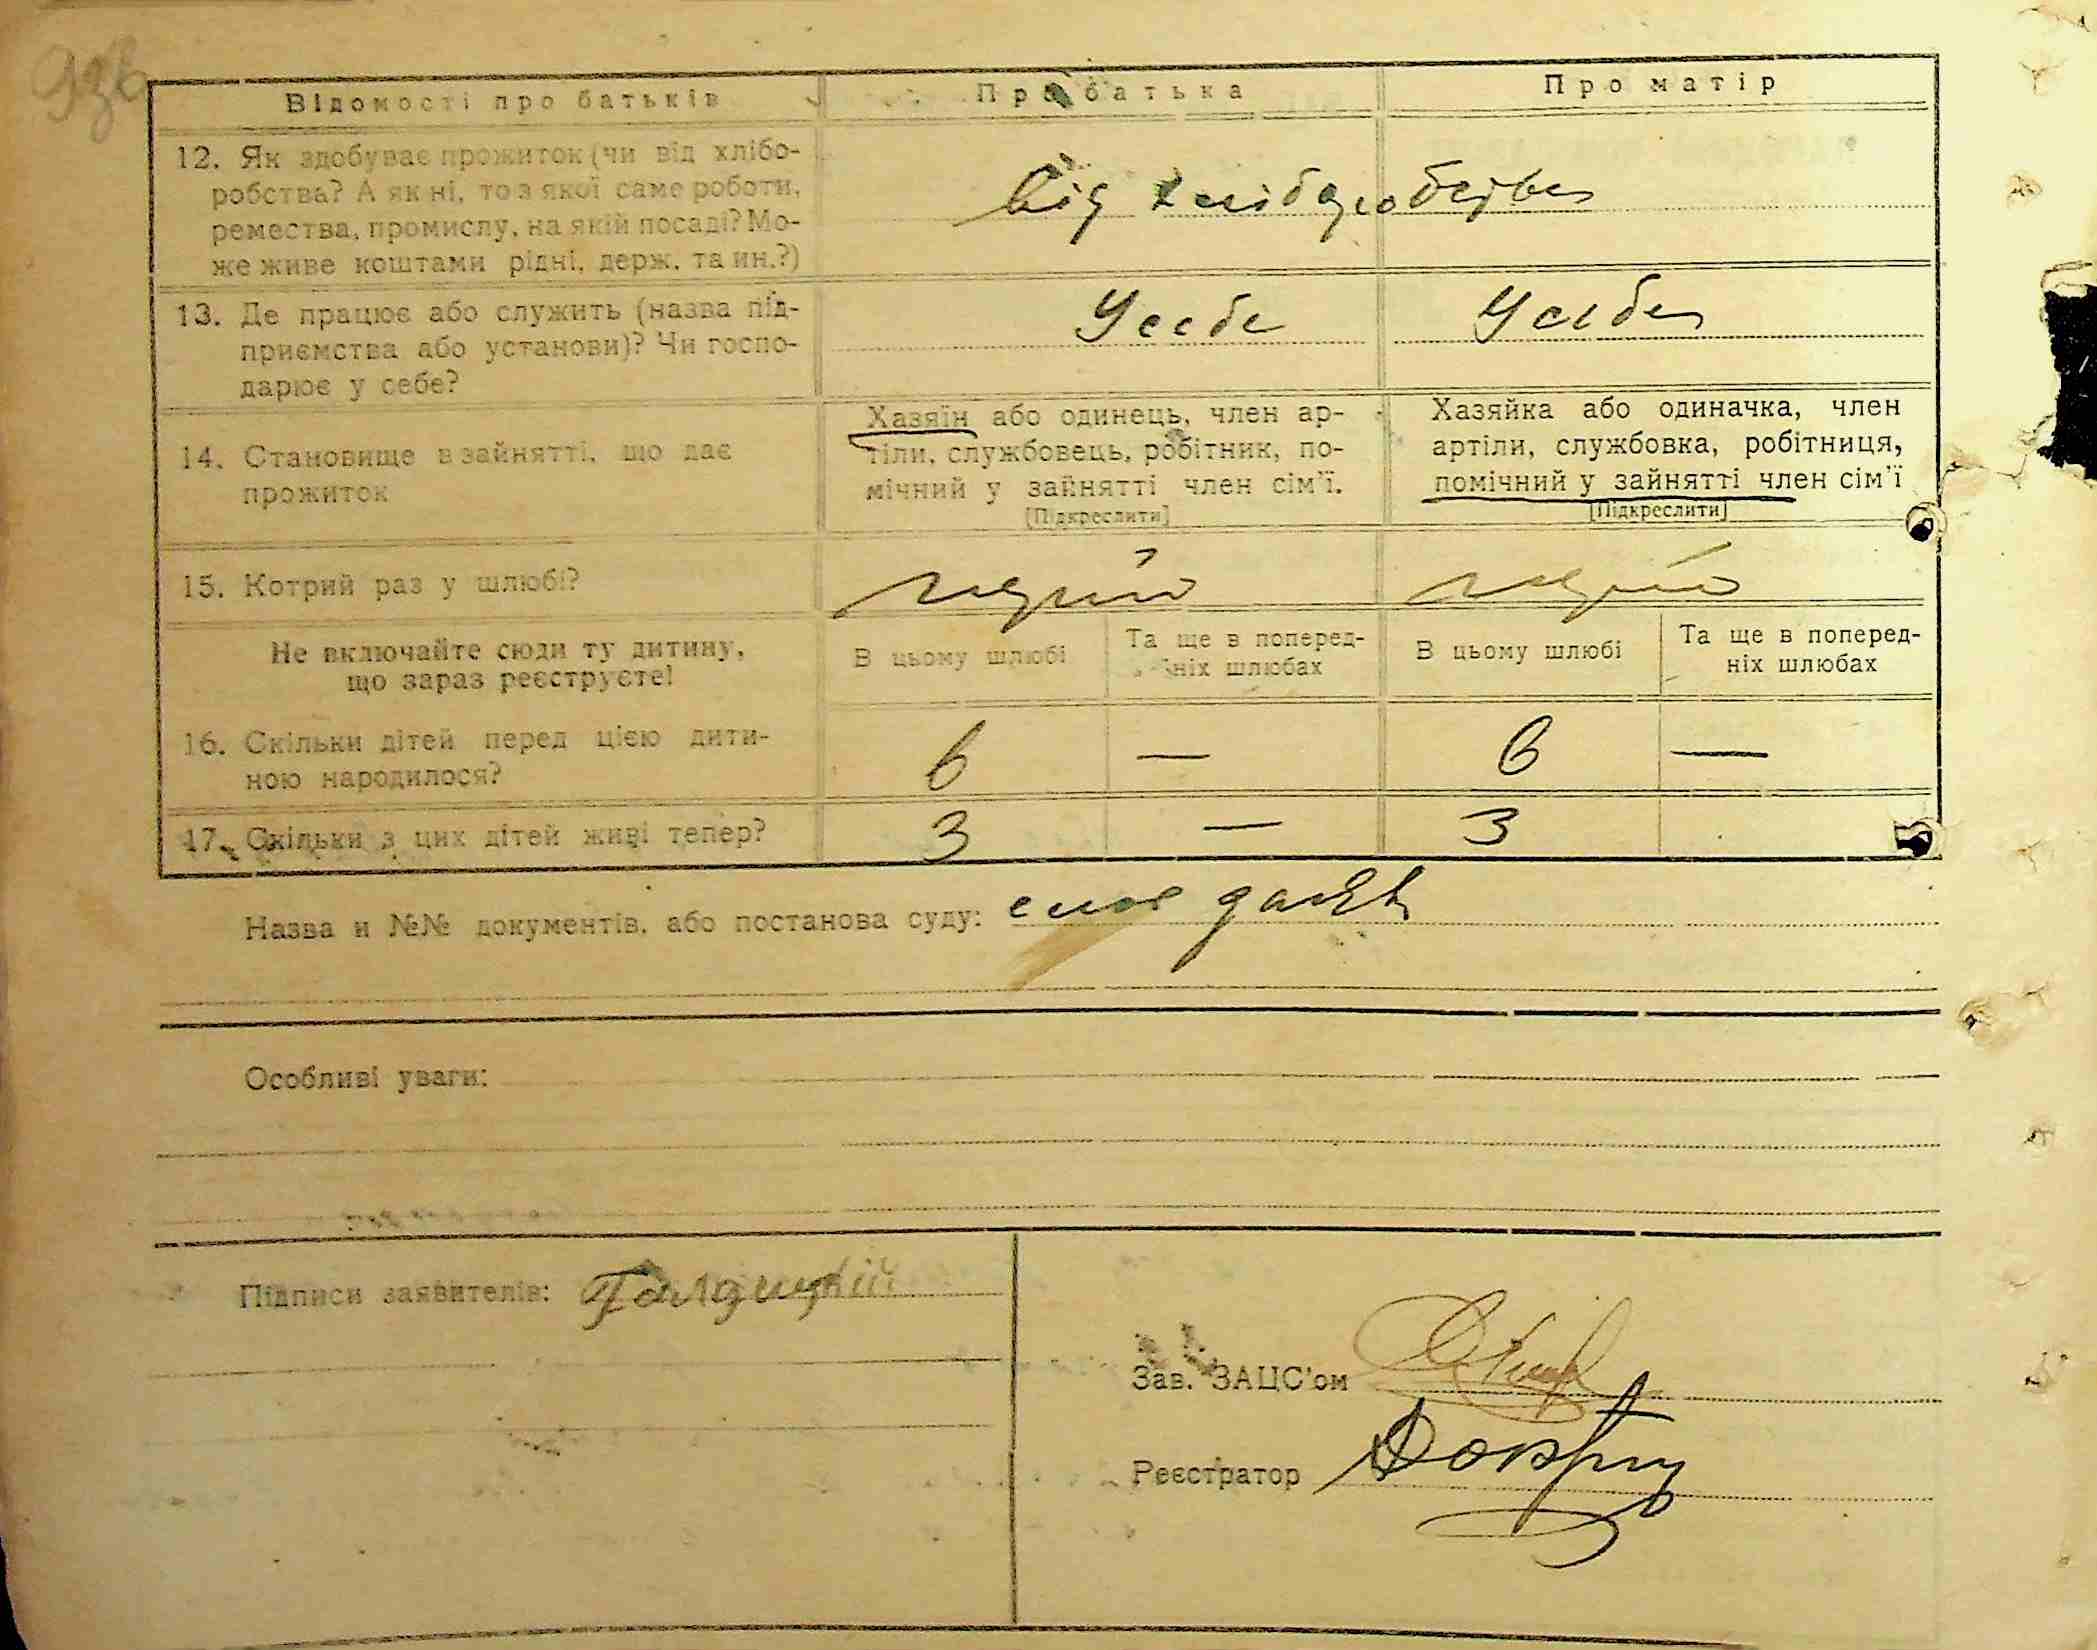 93в
Відомості про батьків
Про батька
Про матір
12. Як здобуває прожиток (чи від хлібо-
робства? А як ні, то з якої саме роботи,
ремества, промислу, на якій посаді? Мо-
же живе коштами рідні, держ. та ин.?)
від хліборобства
13. Де працює або служить (назва під-
приємства або установи)? Чи госпо-
дарює у себе?
У себе
У себе
14. Становище в зайнятті, що дає
прожиток
Хазяїн або одинець, член ар-
тіли, службовець, робітник, по-
мічний у зайнятті член сім'ї.
[Підкреслити]
Хазяйка або одиначка, член
артіли, службовка, робітниця,
помічний у зайнятті член сім'ї
[Підкреслити]
15. Котрий раз у шлюбі?
Не включайте сюди ту дитину,
що зараз реєструєте!
В цьому шлюбі
Та ще в поперед-
ніх шлюбах
В цьому шлюбі
Та ще в поперед-
ніх шлюбах
16. Скільки дітей перед цією дити-
ною народилося?
6
—
6
—
17. Скільки з цих дітей живі тепер?
3
—
3
Назва й №№ документів, або постанова суду:
Особливі уваги:
Підписи заявителів:
Зав. ЗАЦС'ом
Реєстратор